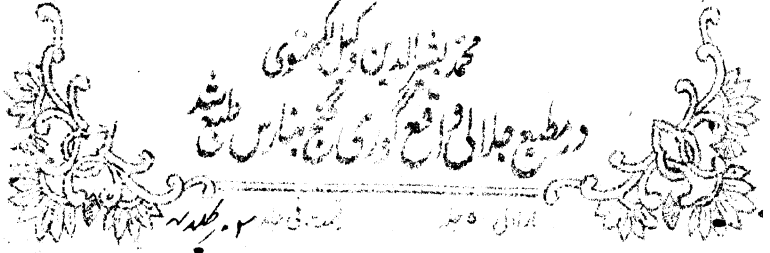 محمد بشیر الدین وکیل لکھنوی
در مطبع جلالی واقع گوری گنج بنارس طبع شد
قیمت فی جلد ۲